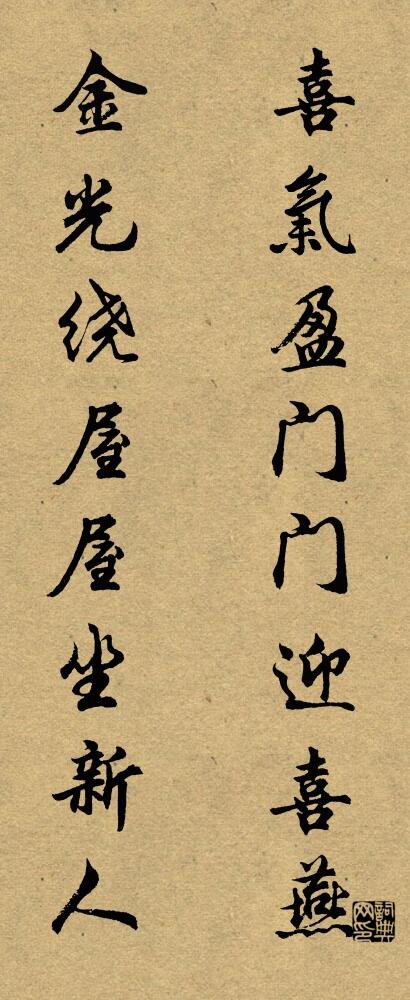 喜氣盈门门迎喜燕
金光绕屋屋坐新人
詞典网印